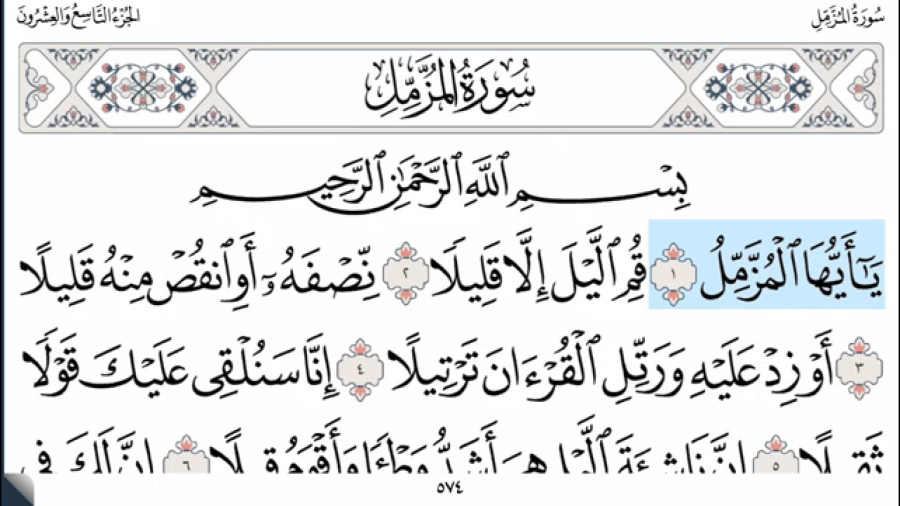 سُورَةُ المُزَّمِّلِ
الجُزْءُ التَّاسِعُ وَالعِشْرُونَ
سُورَةُ المُزَّمِّلِ
بِسْمِ ٱللَّهِ ٱلرَّحْمَٰنِ ٱلرَّحِيمِ
يَٰٓأَيُّهَا ٱلْمُزَّمِّلُ ١ قُمِ ٱلَّيْلَ إِلَّا قَلِيلًا ٢ نِّصْفَهُۥٓ أَوِ ٱنقُصْ مِنْهُ قَلِيلًا
٣ أَوْ زِدْ عَلَيْهِ وَرَتِّلِ ٱلْقُرْءَانَ تَرْتِيلًا ٤ إِنَّا سَنُلْقِى عَلَيْكَ قَوْلًا
ثَقِيلًا ٥ إِنَّ نَاشِئَةَ ٱلَّيْلِ هِىَ أَشَدُّ وَطْـًٔا وَأَقْوَمُ قِيلًا ٦ إِنَّ لَكَ فِى
٥٧٤